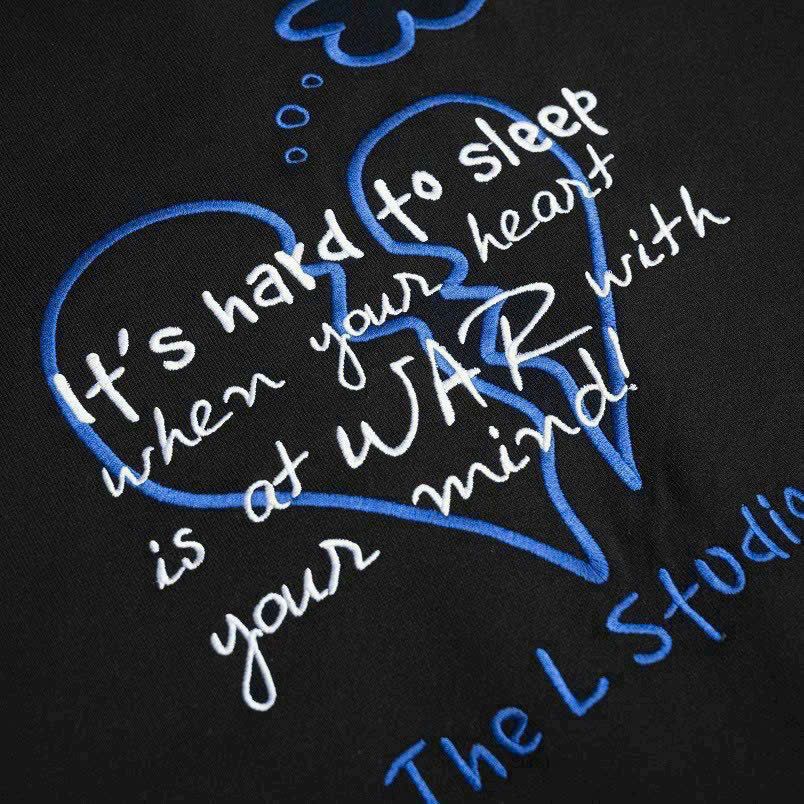 It's hard to sleep
when your heart
is at WAR with
your mind!
The L Studio